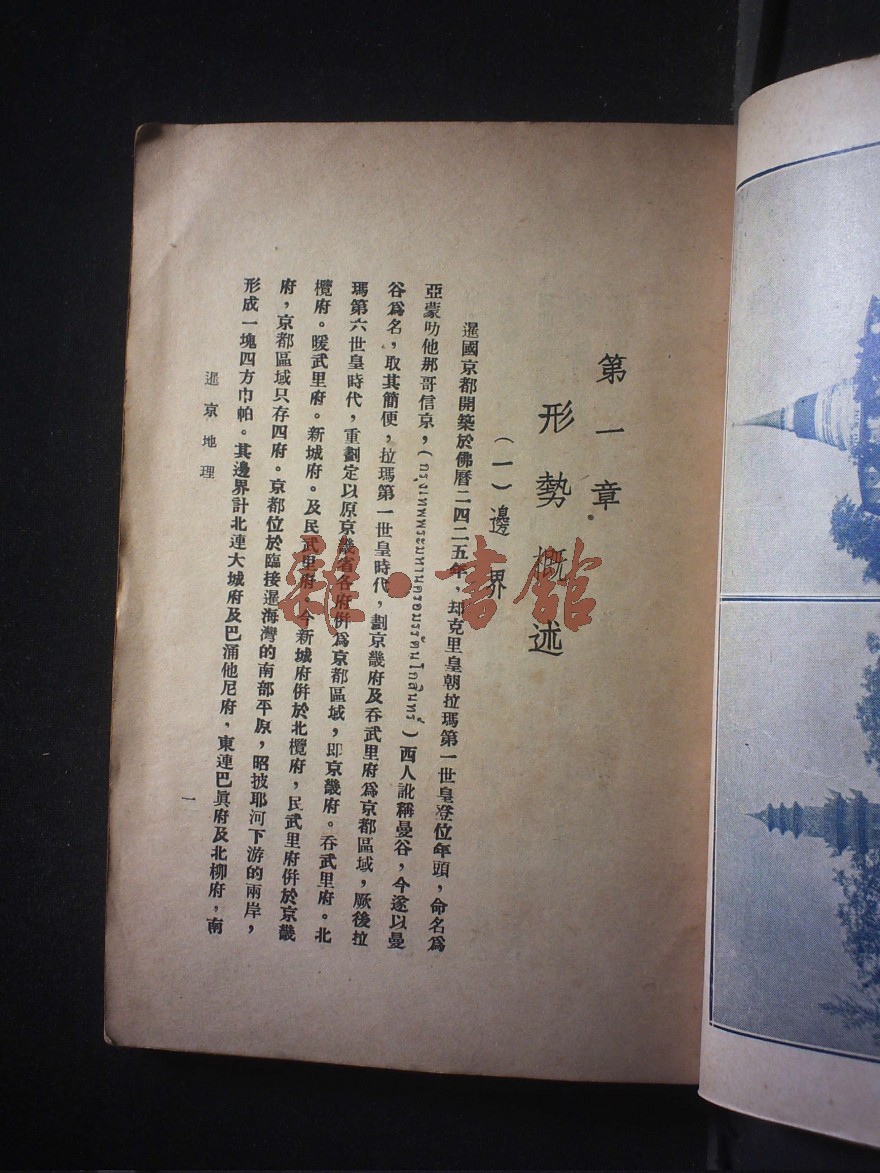 第一章
形勢概述
（一）邊界
暹國京都開築於佛曆二四二五年，却克里皇朝拉瑪第一世皇登位年頭，命名爲
亞蒙叻他那哥信京，（กรุงเทพพระมหานครอมรรัตนโกสินทร์）西人訛稱曼谷，今遂以曼
谷爲名，取其簡便，拉瑪第一世皇時代，劃京畿府及吞武里府爲京都區域，厥後拉
瑪第六世皇時代，重劃定以原京畿省各府併爲京都區域，即京畿府。吞武里府。北
欖府。暖武里府。新城府。及民武里府。今新城府併於北欖府，民武里府併於京畿
府，京都區域只存四府。京都位於臨接暹海灣的南部平原，昭披耶河下游的兩岸，
形成一塊四方巾帕。其邊界計北連大城府及巴涌他尼府，東連巴眞府及北柳府，南
暹京地理
一
雜·書館